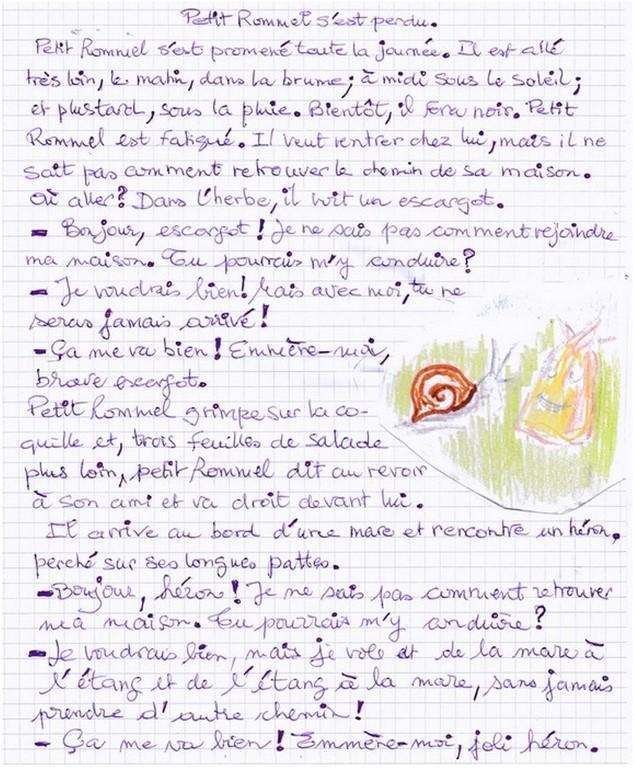 Petit Rommel s'est perdu.
Petit Rommel s'est promené toute la journée. Il est allé
très loin, le matin, dans la brume ; à midi sous le soleil ;
et plus tard, sous la pluie. Bientôt, il fera noir. Petit
Rommel est fatigué. Il veut rentrer chez lui, mais il ne
sait pas comment retrouver le chemin de sa maison.
Où aller ? Dans l'herbe, il voit un escargot.
- Bonjour, escargot ! Je ne sais pas comment rejoindre
ma maison. Tu pourrais m'y conduire ?
- Je voudrais bien ! Mais avec moi, tu ne
seras jamais arrivé !
- Ça me va bien ! Emmène-moi,
brave escargot.
Petit Rommel grimpe sur la co-
quille et, trois feuilles de salade
plus loin, petit Rommel dit au revoir
à son ami et va droit devant lui.
Il arrive au bord d'une mare et rencontre un héron,
perché sur ses longues pattes.
- Bonjour, héron ! Je ne sais pas comment retrouver
ma maison. Tu pourrais m'y conduire ?
- Je voudrais bien, mais je vole et de la mare à
l'étang et de l'étang à la mare, sans jamais
prendre d'autre chemin !
- Ça me va bien ! Emmène-moi, joli héron.